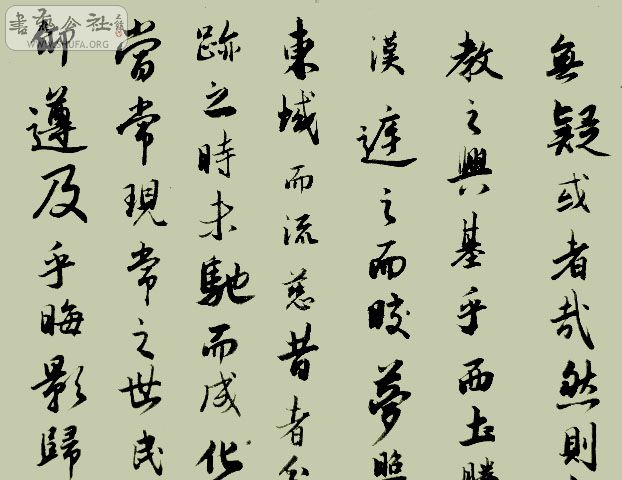 無疑或者哉然則
教之興基乎西土騰
漢庭之而皎夢照
東域而流慈昔者分
跡之時未馳而成化
當常現常之世民
遵及乎晦影歸
書法公社
WWW.SHUFA.ORG